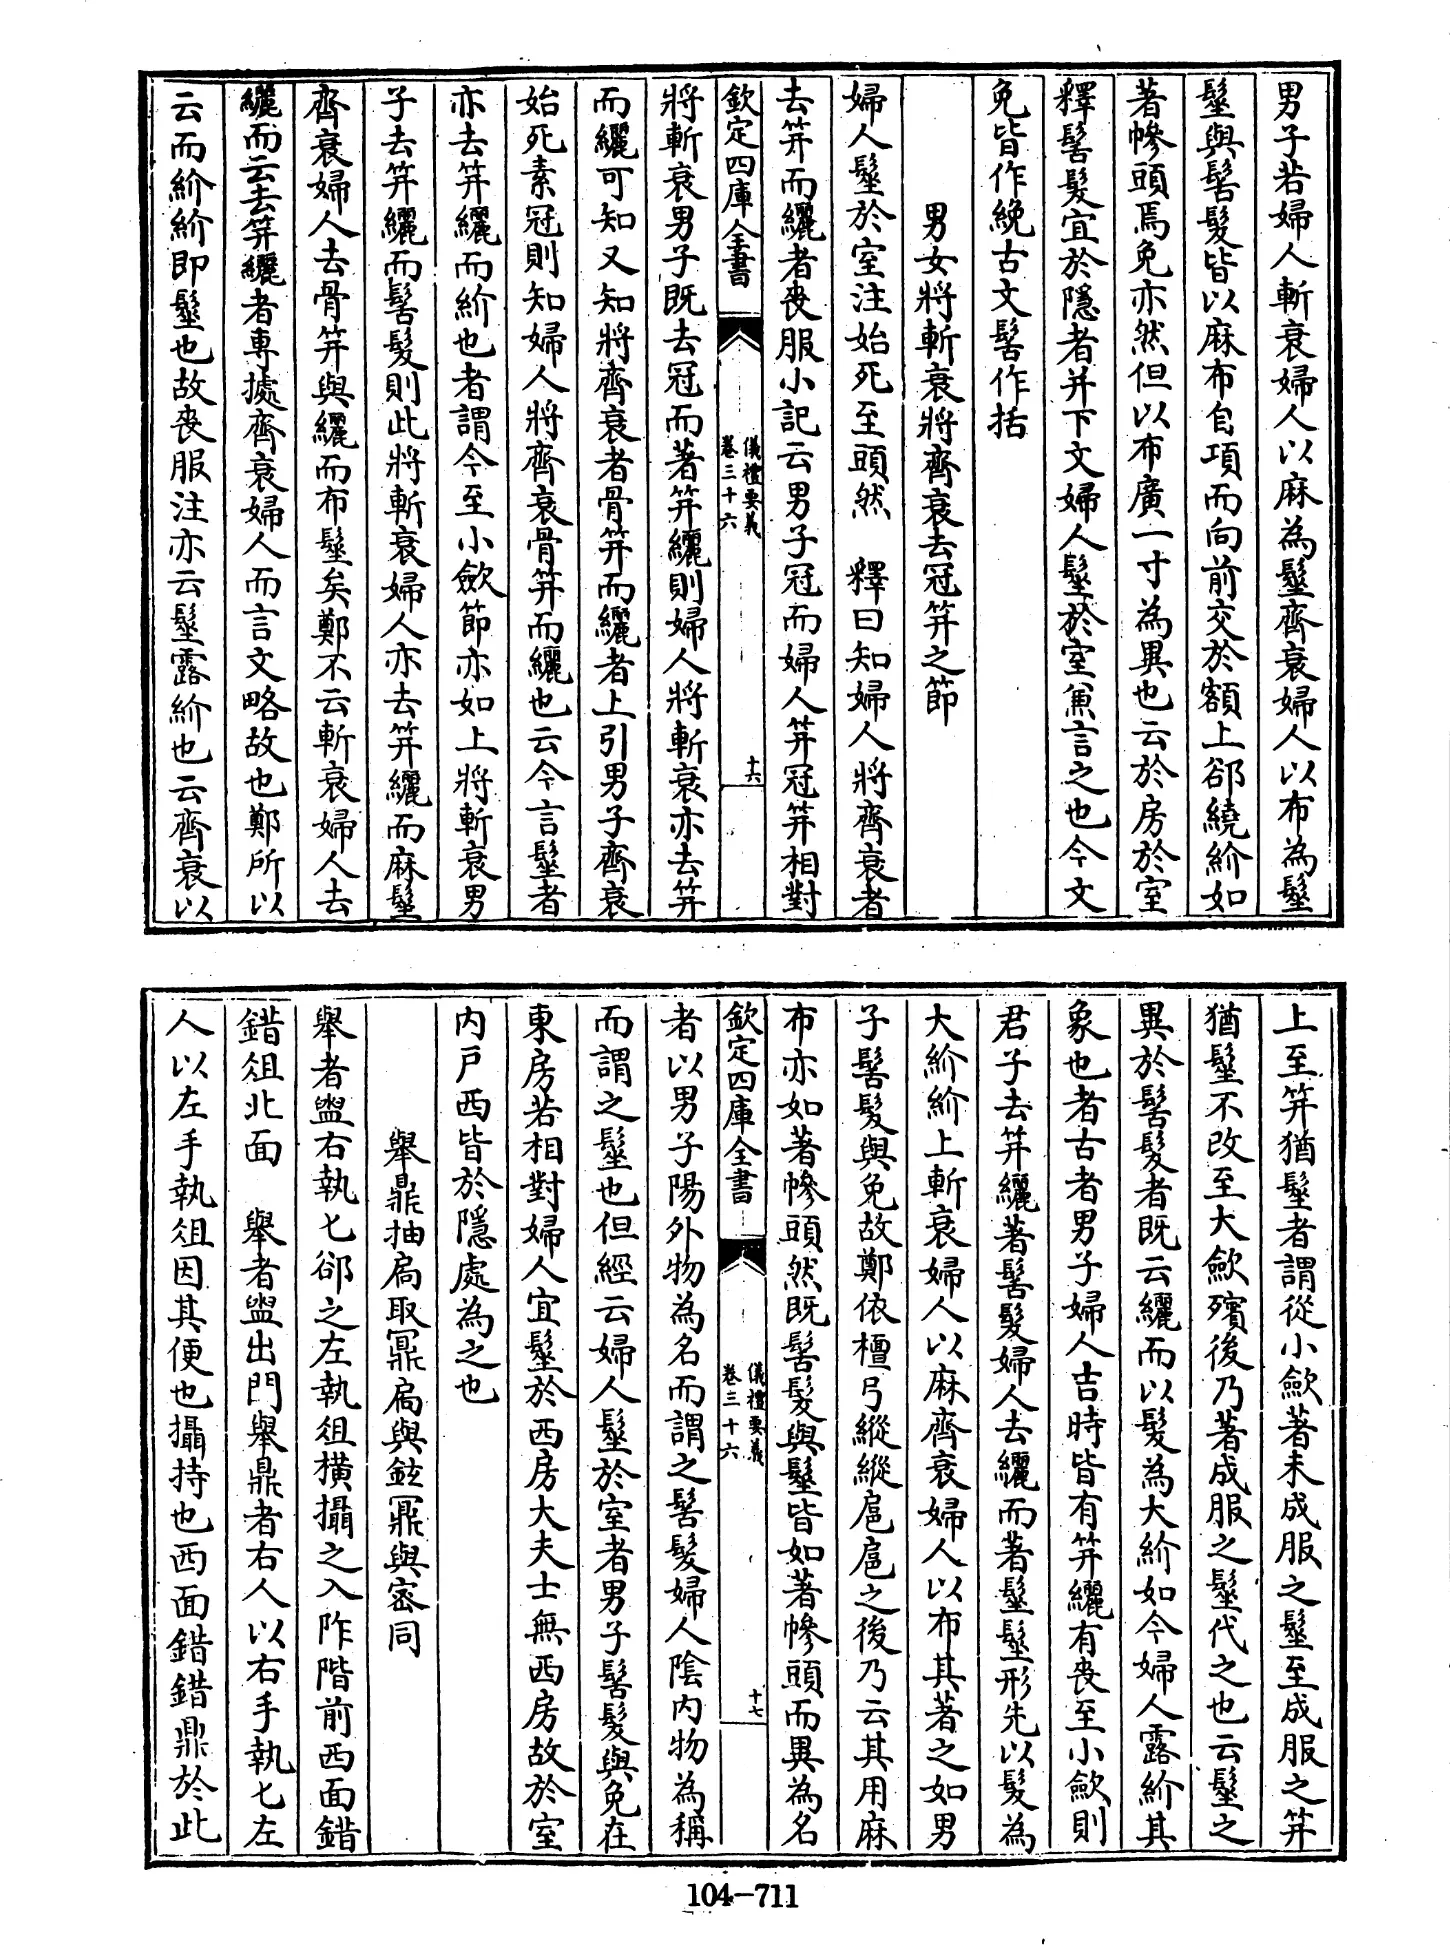 男子若婦人斬衰婦人以麻為髽齊衰婦人以布為髽
髽與髺髮皆以麻布自項而向前交於額上郤繞紒如
著幓頭焉免亦然但以布廣一寸為異也云於房於室
釋髺髮宜於隱者并下文婦人髽於室兼言之也今文
免皆作絻古文髺作括
男女將斬衰將齊衰去冠笄之節
婦人髽於室注始死至頭然　釋曰知婦人將齊衰者
去笄而纚者喪服小記云男子冠而婦人笄冠笄相對
欽定四庫全書
儀禮要義
卷三十六
十六
將斬衰男子既去冠而著笄纚則婦人將斬衰亦去笄
而纚可知又知將齊衰者骨笄而纚者上引男子齊衰
始死素冠則知婦人將齊衰骨笄而纚也云今言髽者
亦去笄纚而紒也者謂今至小斂節亦如上將斬衰男
子去笄纚而髺髮則此將斬衰婦人亦去笄纚而麻髽
齊衰婦人去骨笄與纚而布髽矣鄭不云斬衰婦人去
纚而云去笄纚者專據齊衰婦人而言文略故也鄭所以
云而紒紒即髽也故喪服注亦云髽露紒也云齊衰以
上至笄猶髽者謂從小斂著未成服之髽至成服之笄
猶髽不改至大斂殯後乃著成服之髽代之也云髽之
異於髺髮者既云纚而以髮為大紒如今婦人露紒其
象也者古者男子婦人吉時皆有笄纚有喪至小斂則
君子去笄纚著髺髮婦人去纚而著髽髽形先以髮為
大紒紒上斬衰婦人以麻齊衰婦人以布其著之如男
子髺髮與免故鄭依檀弓縱縱扈扈之後乃云其用麻
布亦如著幓頭然既髺髮與髽皆如著幓頭而異為名
欽定四庫全書
儀禮要義
卷三十六
十七
者以男子陽外物為名而謂之髺髮婦人陰内物為稱
而謂之髽也但經云婦人髽於室者男子髺髮與免在
東房若相對婦人宜髽於西房大夫士無西房故於室
内戸西皆於隱處為之也
舉鼎抽扃取鼏扃與鉉鼏與密同
舉者盥右執匕郤之左執俎横攝之入阼階前西面錯
錯俎北面　舉者盥出門舉鼎者右人以右手執匕左
人以左手執俎因其便也攝持也西面錯錯鼎於此
104-711